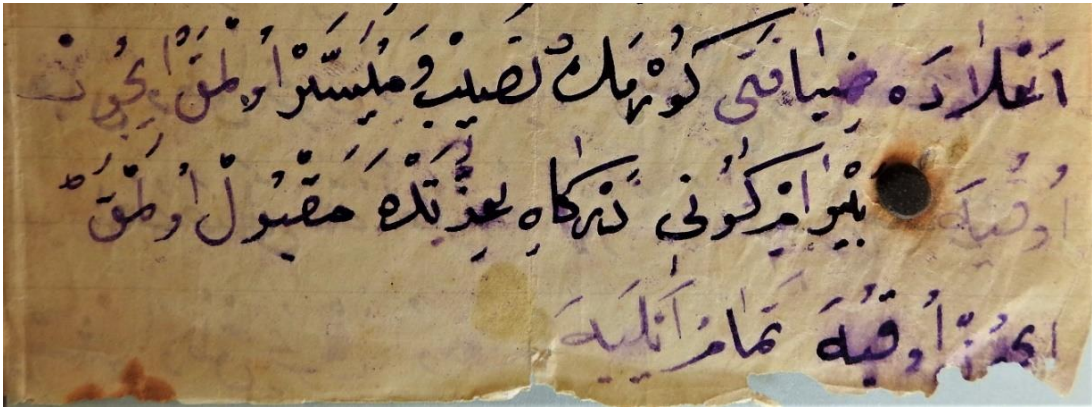 اَعْلَادَه ضِيَافَتِى كُورْمَكْ نَصِيبْ وَ مُيَسَّرْ اُولْمَقْ اِيچُونْ
اُوقُيَه بَيْرَامْ كُونِى دَرْكَاهِ عِزَّتْدَه مَقْبُولْ اُولْمَقْ
اِيچُونْ اُوقُيَه تَمَامْ